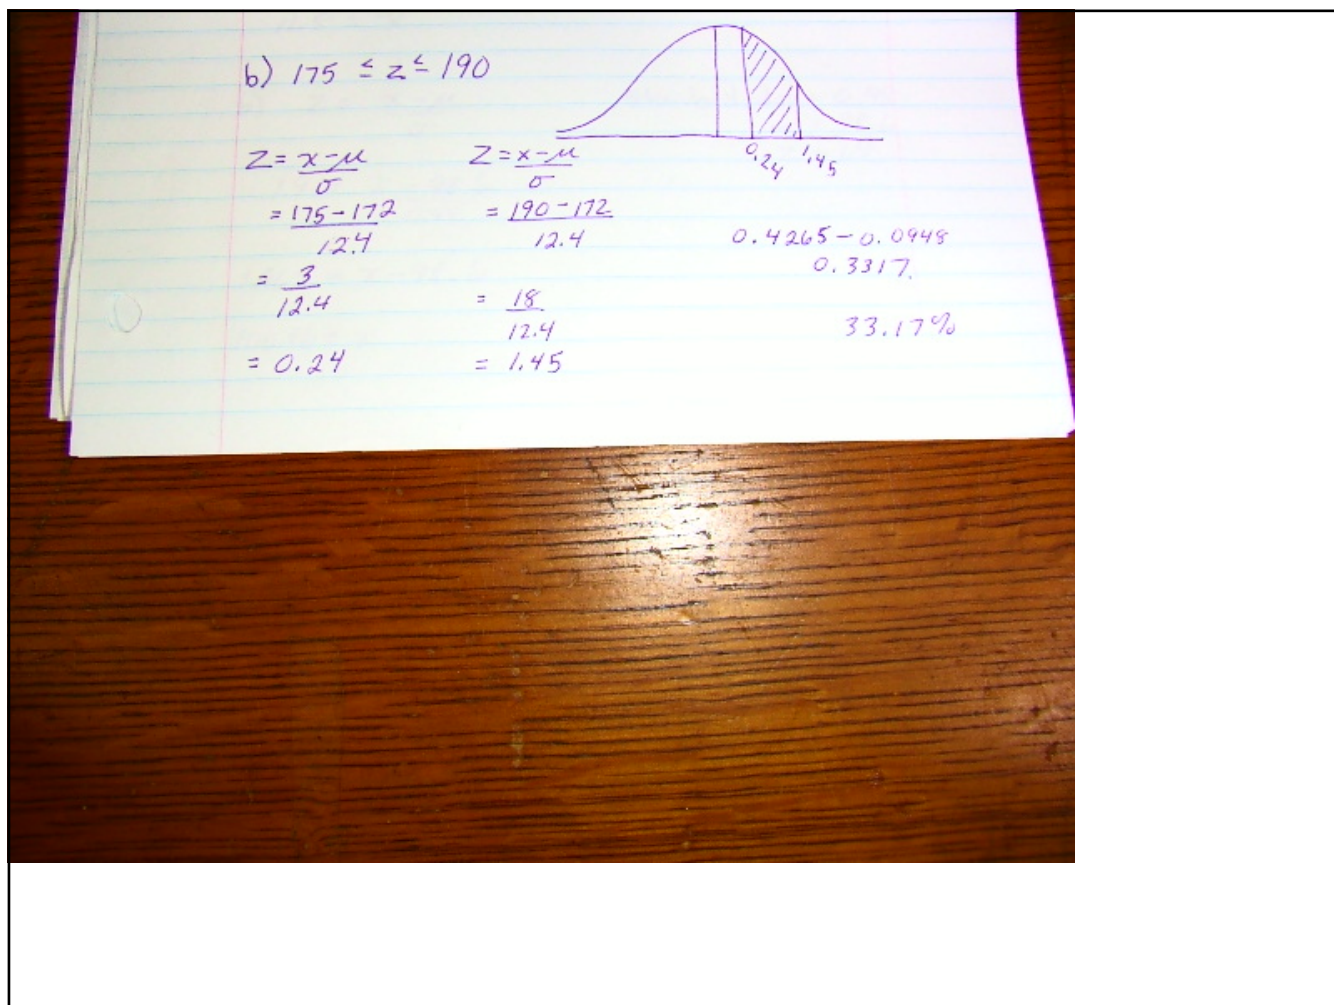 b) 175 ≤ z ≤ 190
0.24 1.45
Z = x-μ/σ
= 175-172/12.4
= 3/12.4
= 0.24
Z = x-μ/σ
= 190-172/12.4
= 18/12.4
= 1.45
0.4265-0.0948
0.3317.
33.17%